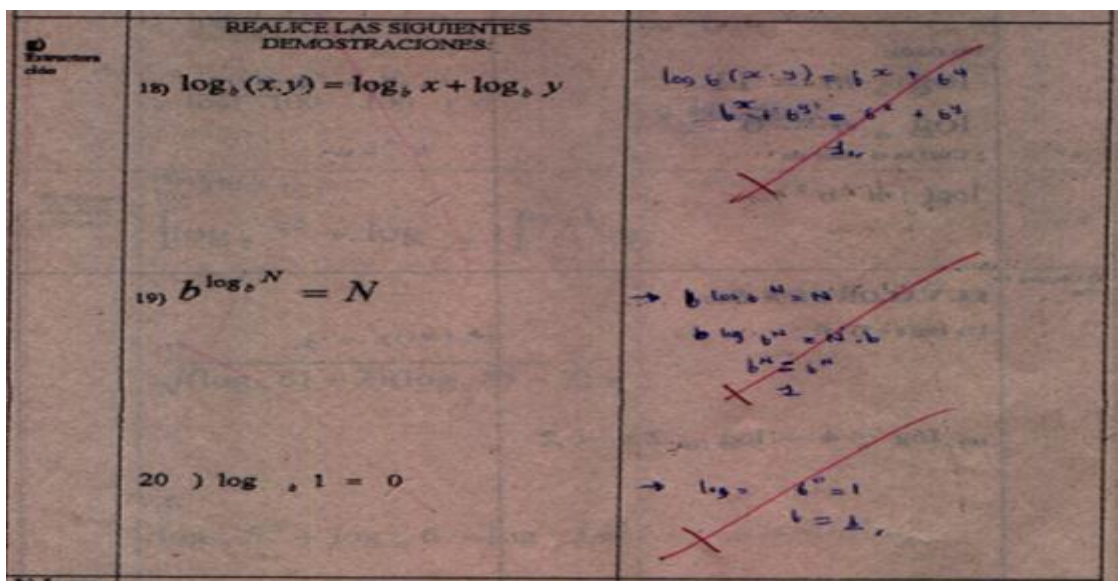 REALICE LAS SIGUIENTES
DEMOSTRACIONES:
18) log_b (x.y) = log_b x + log_b y
log b (x · y) = b^x + b^y
b^x + b^y = b^x + b^y
1
19) b^{log_b N} = N
→ b log b^N = N
b log b^N = N.b
b^N = b^N
1
20 ) log _b 1 = 0
→ log = b^0 = 1
b = 1